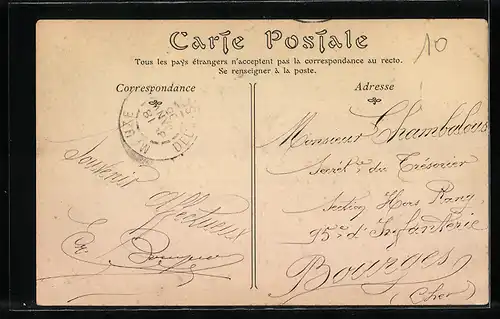 10
Carte Postale
Tous les pays étrangers n'acceptent pas la correspondance au recto.
Se renseigner à la poste.
Correspondance
Adresse
Souvenir
affectueux
Monsieur Chambalous
Secrét. du Trésorier
Section Hors Rang
95e d'Infanterie
Bourges
(Cher)